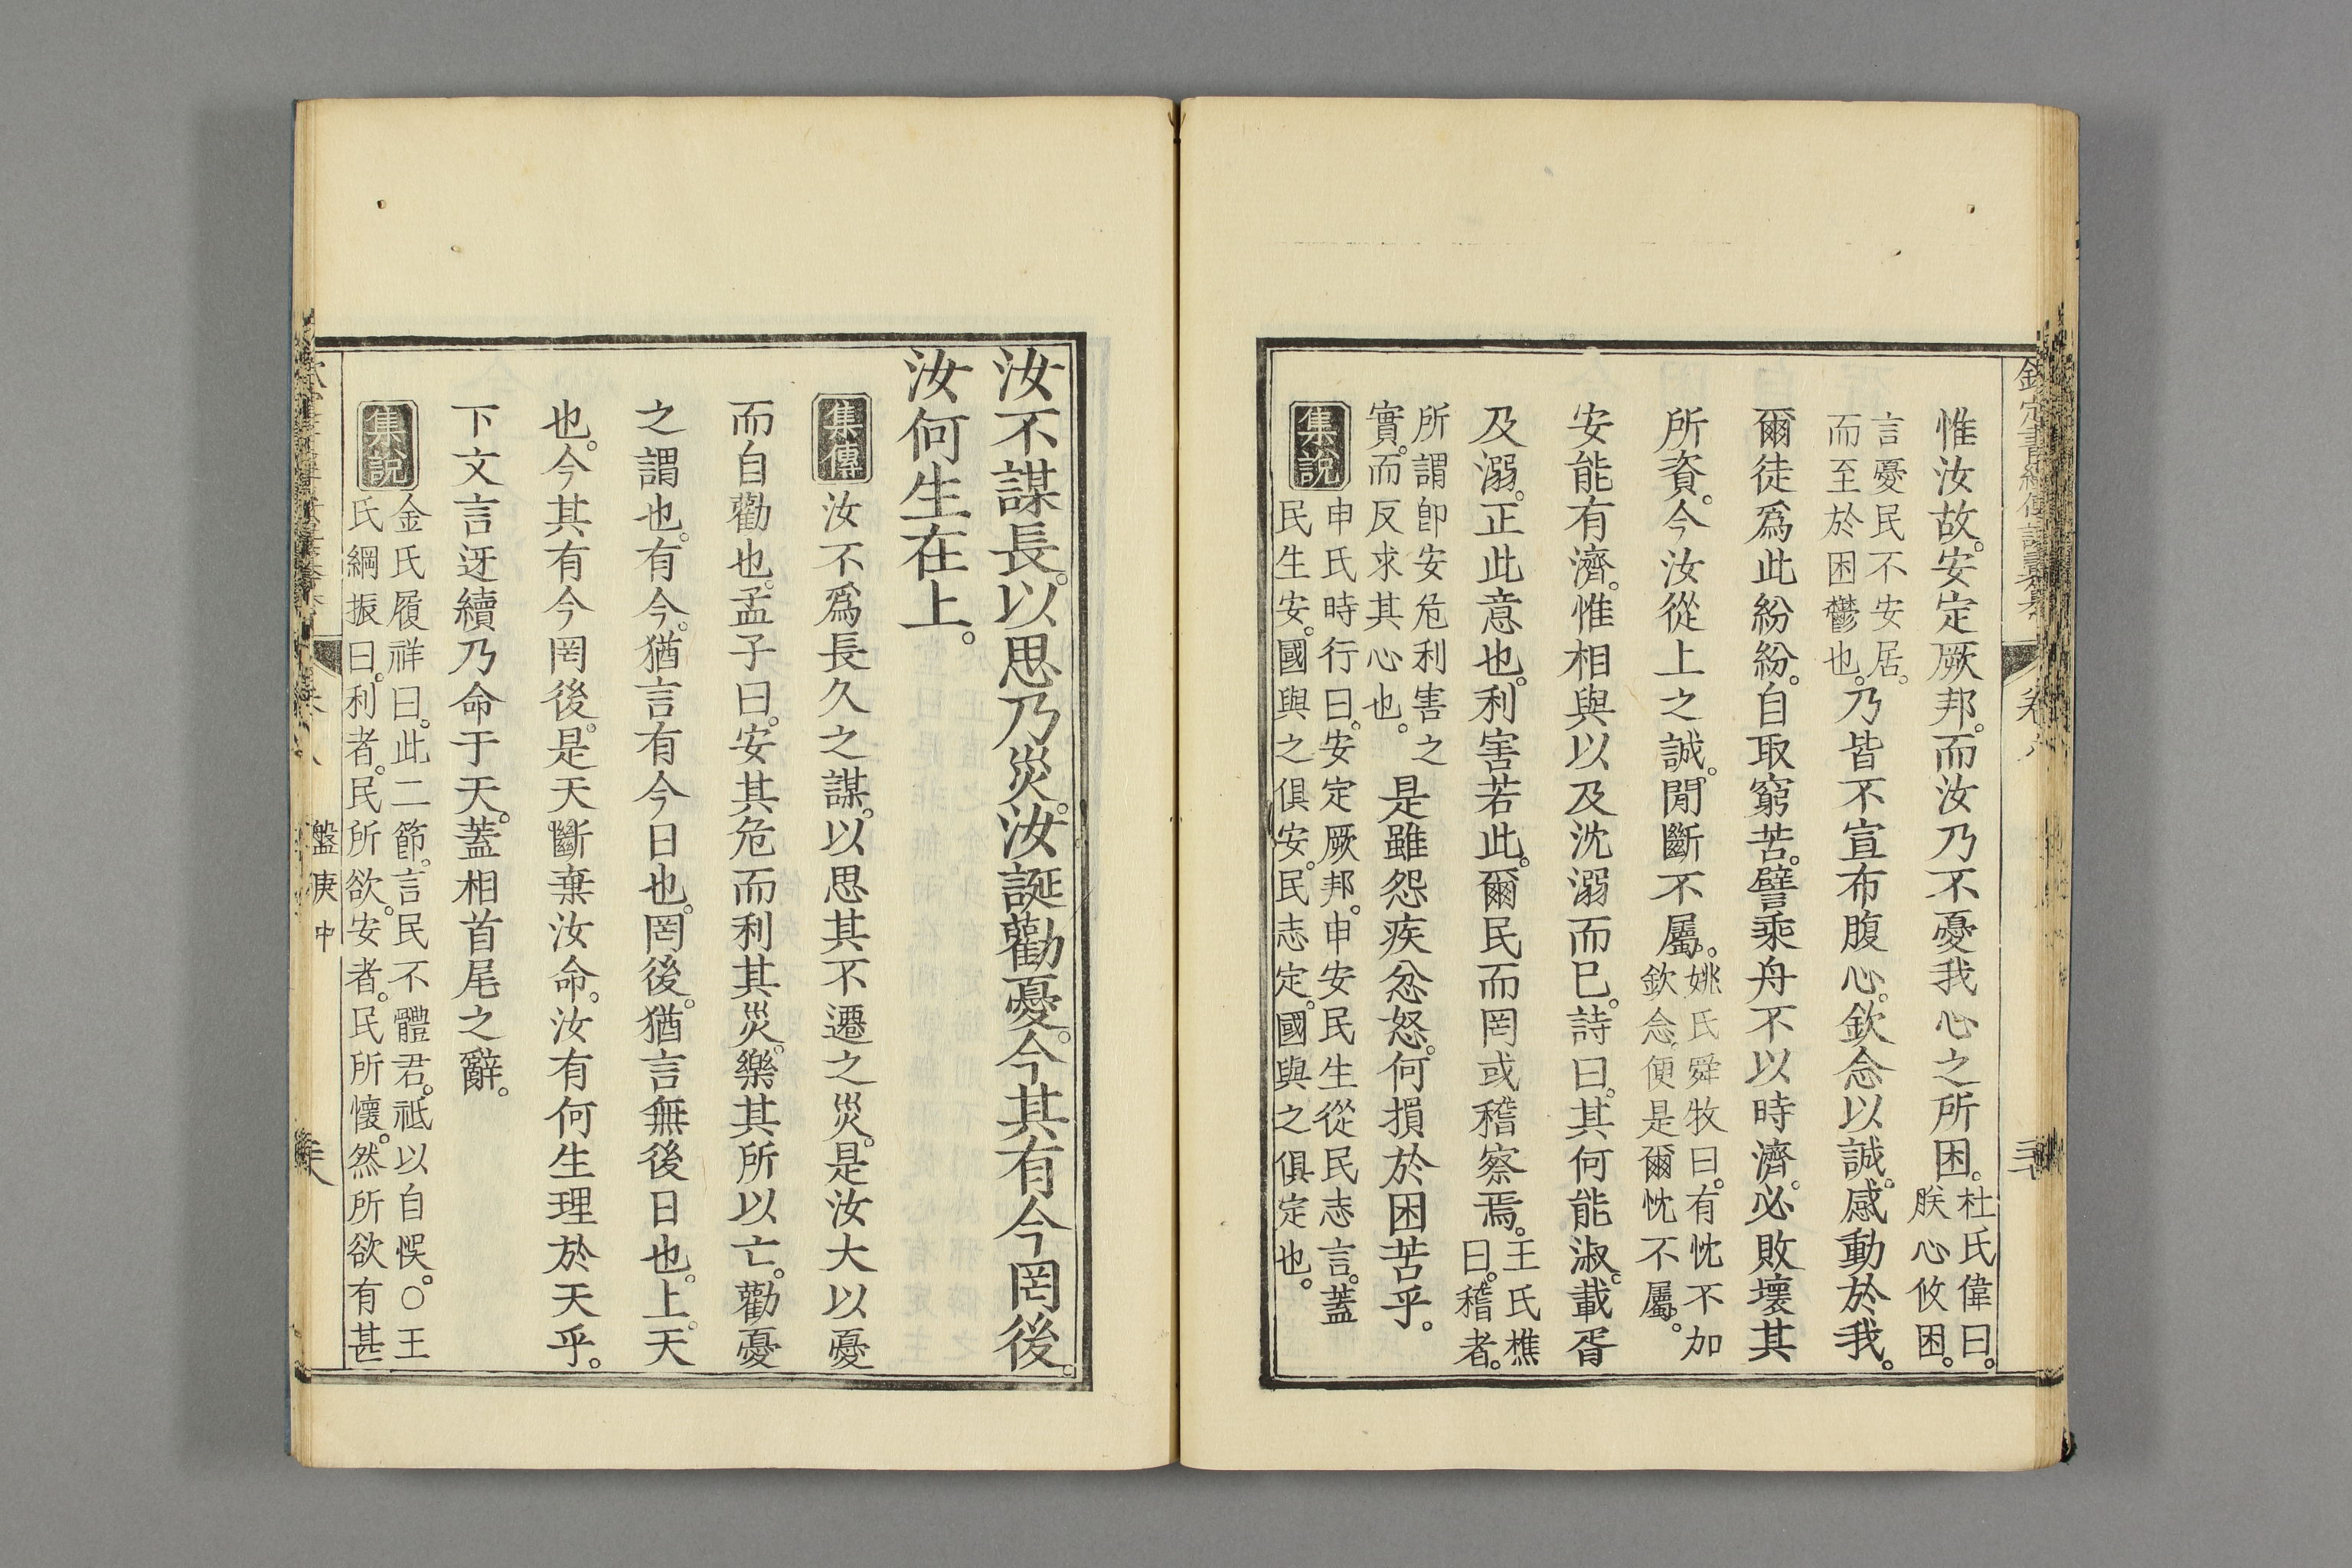 惟汝故。安定厥邦。而汝乃不憂我心之所困。杜氏偉曰。
朕心攸困。
言憂民不安居。
而至於困鬱也。乃皆不宣布腹心。欽念以誠。感動於我。
爾徒爲此紛紛。自取窮苦。譬乘舟不以時濟。必敗壞其
所資。今汝從上之誠。閒斷不屬。姚氏舜牧曰。有忱不加
欽念。便是爾忱不屬。
安能有濟。惟相與以及沈溺而已。詩曰。其何能淑。載胥
及溺。正此意也。利害若此。爾民而罔或稽察焉。王氏樵
曰。稽者。
所謂卽安危利害之
實。而反求其心也。是雖怨疾忿怒。何損於困苦乎。
集說
申氏時行曰。安定厥邦。申安民生從民志言。蓋
民生安。國與之俱安。民志定。國與之俱定也。
汝不謀長。以思乃災。汝誕勸憂。今其有今罔後。
汝何生在上。
集傳 汝不爲長久之謀。以思其不遷之災。是汝大以憂
而自勸也。孟子曰。安其危而利其災。樂其所以亡。勸憂
之謂也。有今。猶言有今日也。罔後。猶言無後日也。上。天
也。今其有今罔後。是天斷棄汝命。汝有何生理於天乎。
下文言迓續乃命于天。蓋相首尾之辭。
集說
金氏履祥曰。此二節。言民不體君。祗以自悞。○王
氏綱振曰。利者。民所欲。安者。民所懷。然所欲有甚
盤庚中